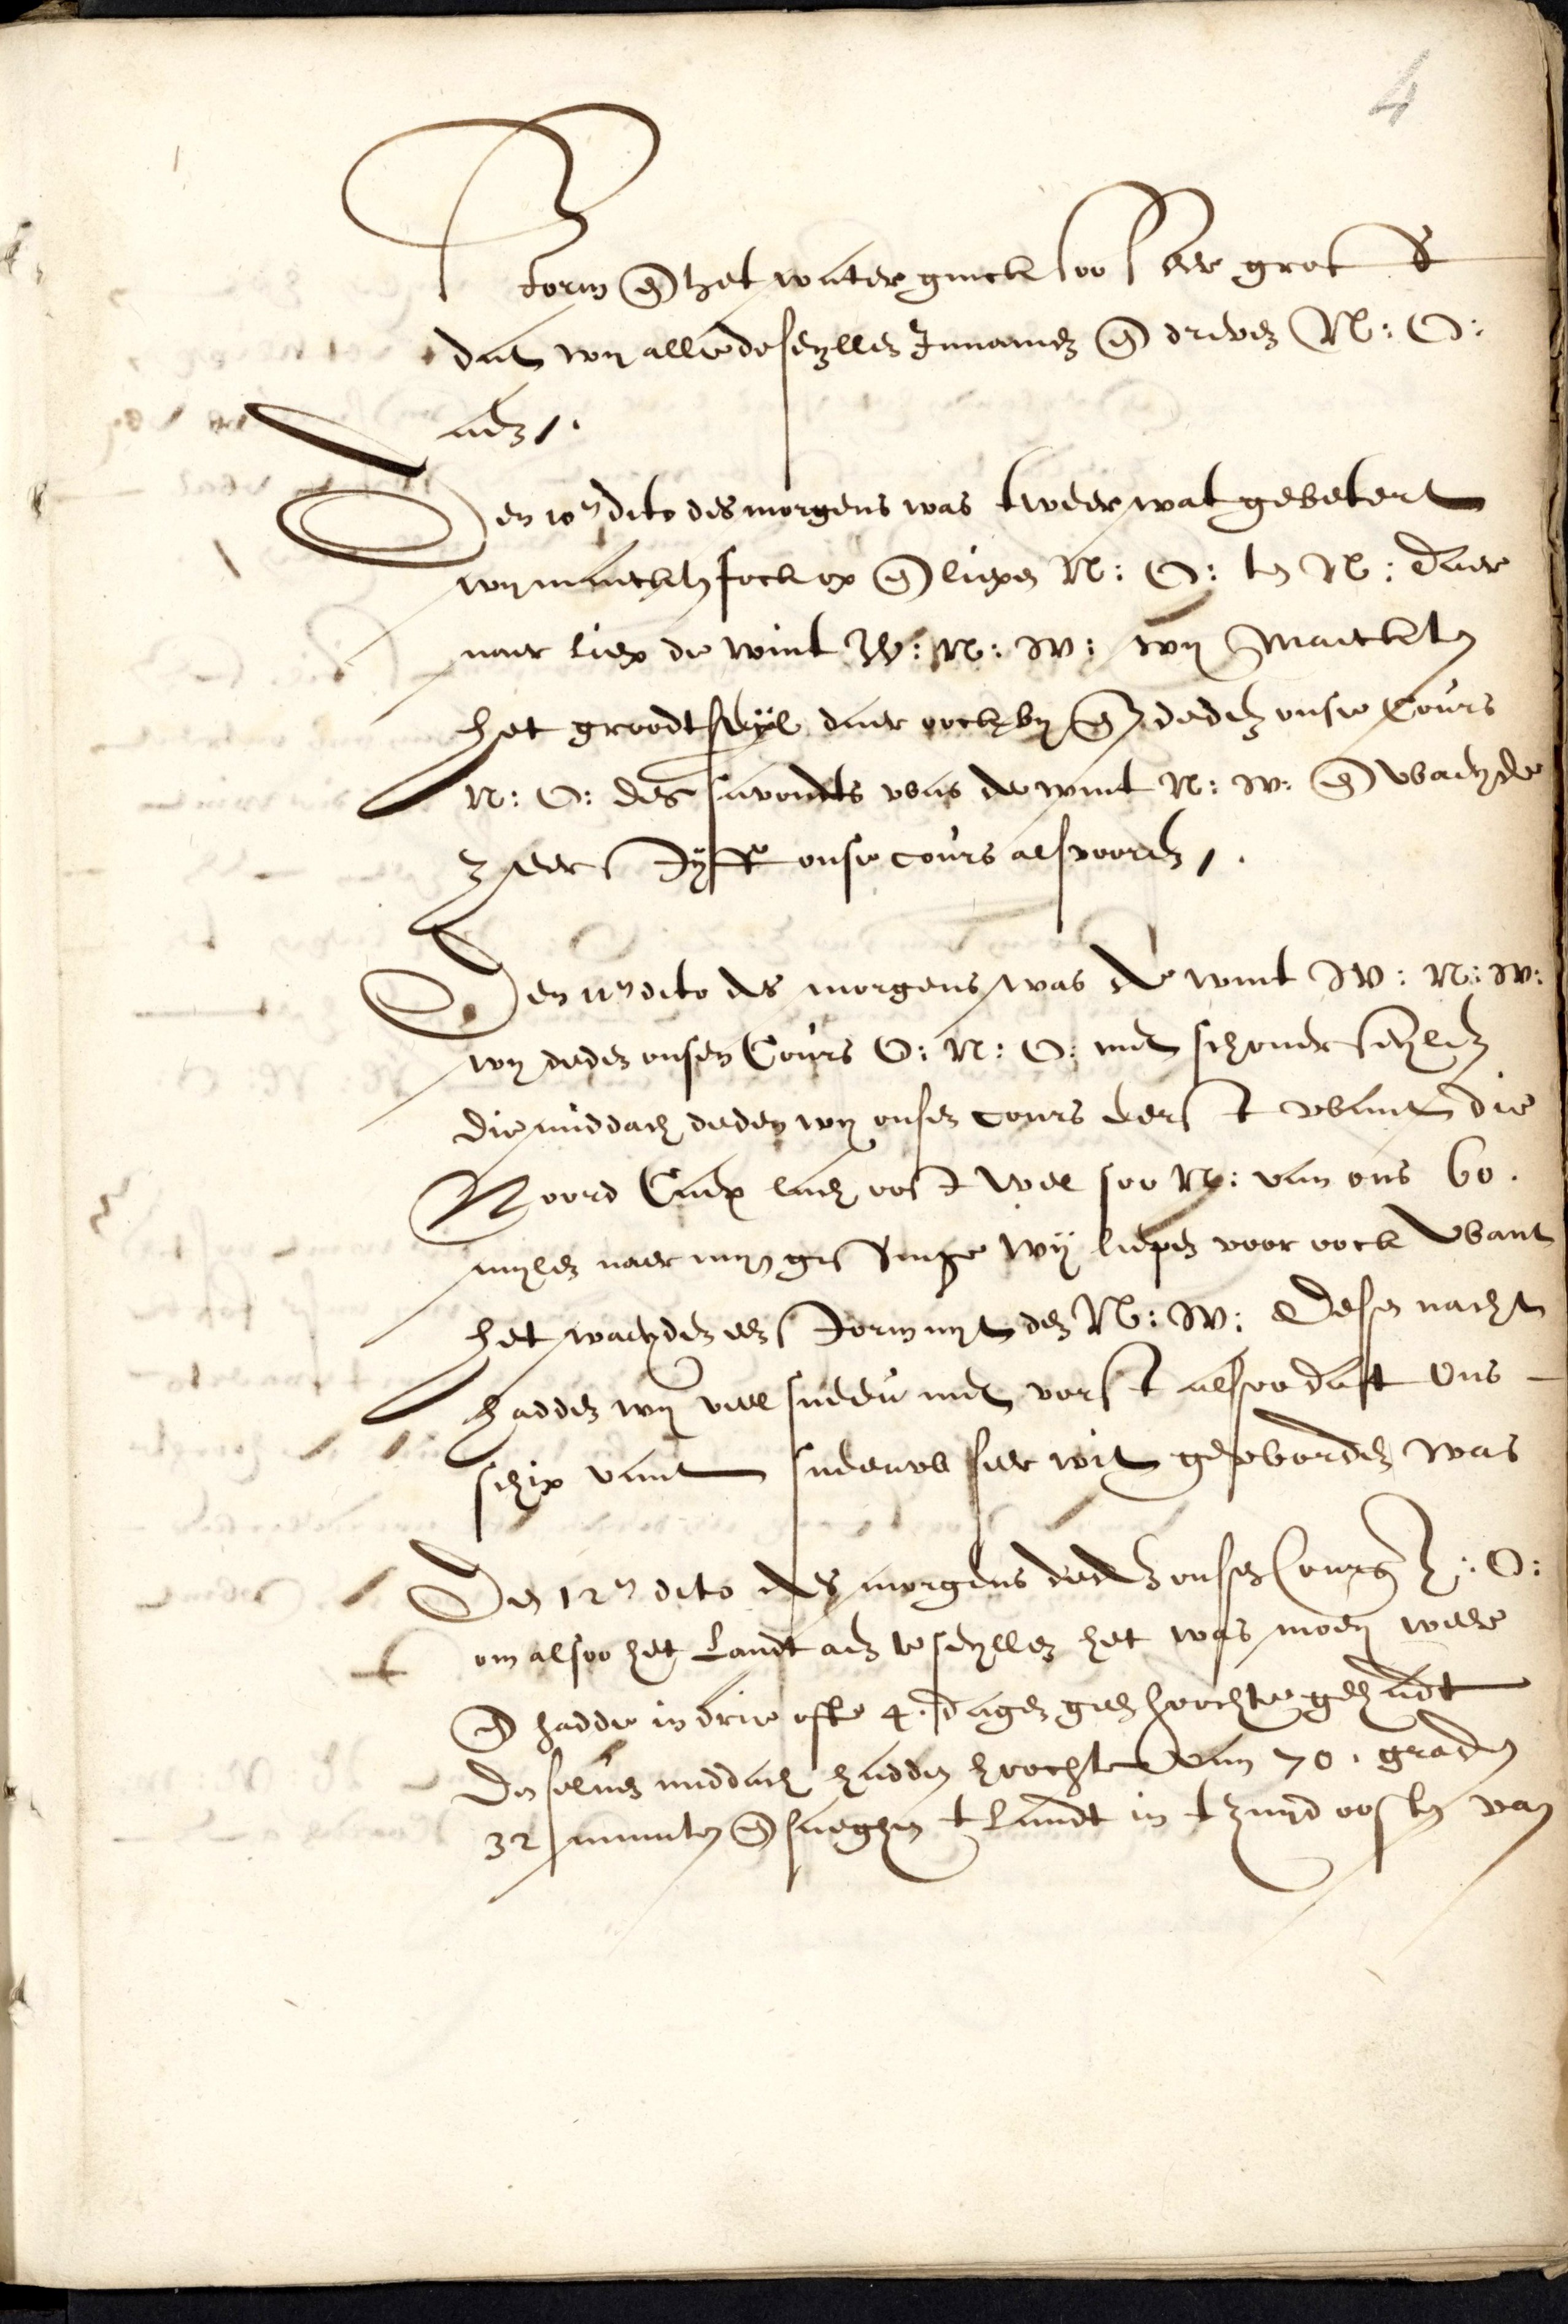 4
Storm en het water ginck soo seer groot
dat wy alle de seyllen Innamen en dreven N: O:
aen /.
Den 10en dito des morgens was tweer wat gebetert
wy maeckten fock op en liepen N: O: ten N: daer
naer liep de wint W: N: W: wy Maeckten
het groodt seyl daer oock by en deden onse Cours
N: O: des savondts was de wint N: W: en waeyde
zeer styff onse cours als vooren /.
Den 11en dito des morgens was de wint W: N: W:
wy deden onsen Cours O: N: O: met schoner seylen
die middach deden wy onsen cours eerst want die
Noord Caep lach oost wel soo N: van ons 60.
mylen naer myn gissinge wy liepen voor oock want
het waeyden een storm uyt den N: W: desen nacht
hadden wy veel sneeu met vorst alsoo dat ons
schip vant sneeuw seer wit geworden was
Den 12en dito des morgens deden onsen Cours Z: O:
om alsoo het Landt aen te seyllen het was moey weer
en hadde in drie ofte 4. dagen geen hoochte gehadt
De selven middach hadden hoochte van 70. graden
32 minuten en saeghen t Landt in t zuyd oosten van